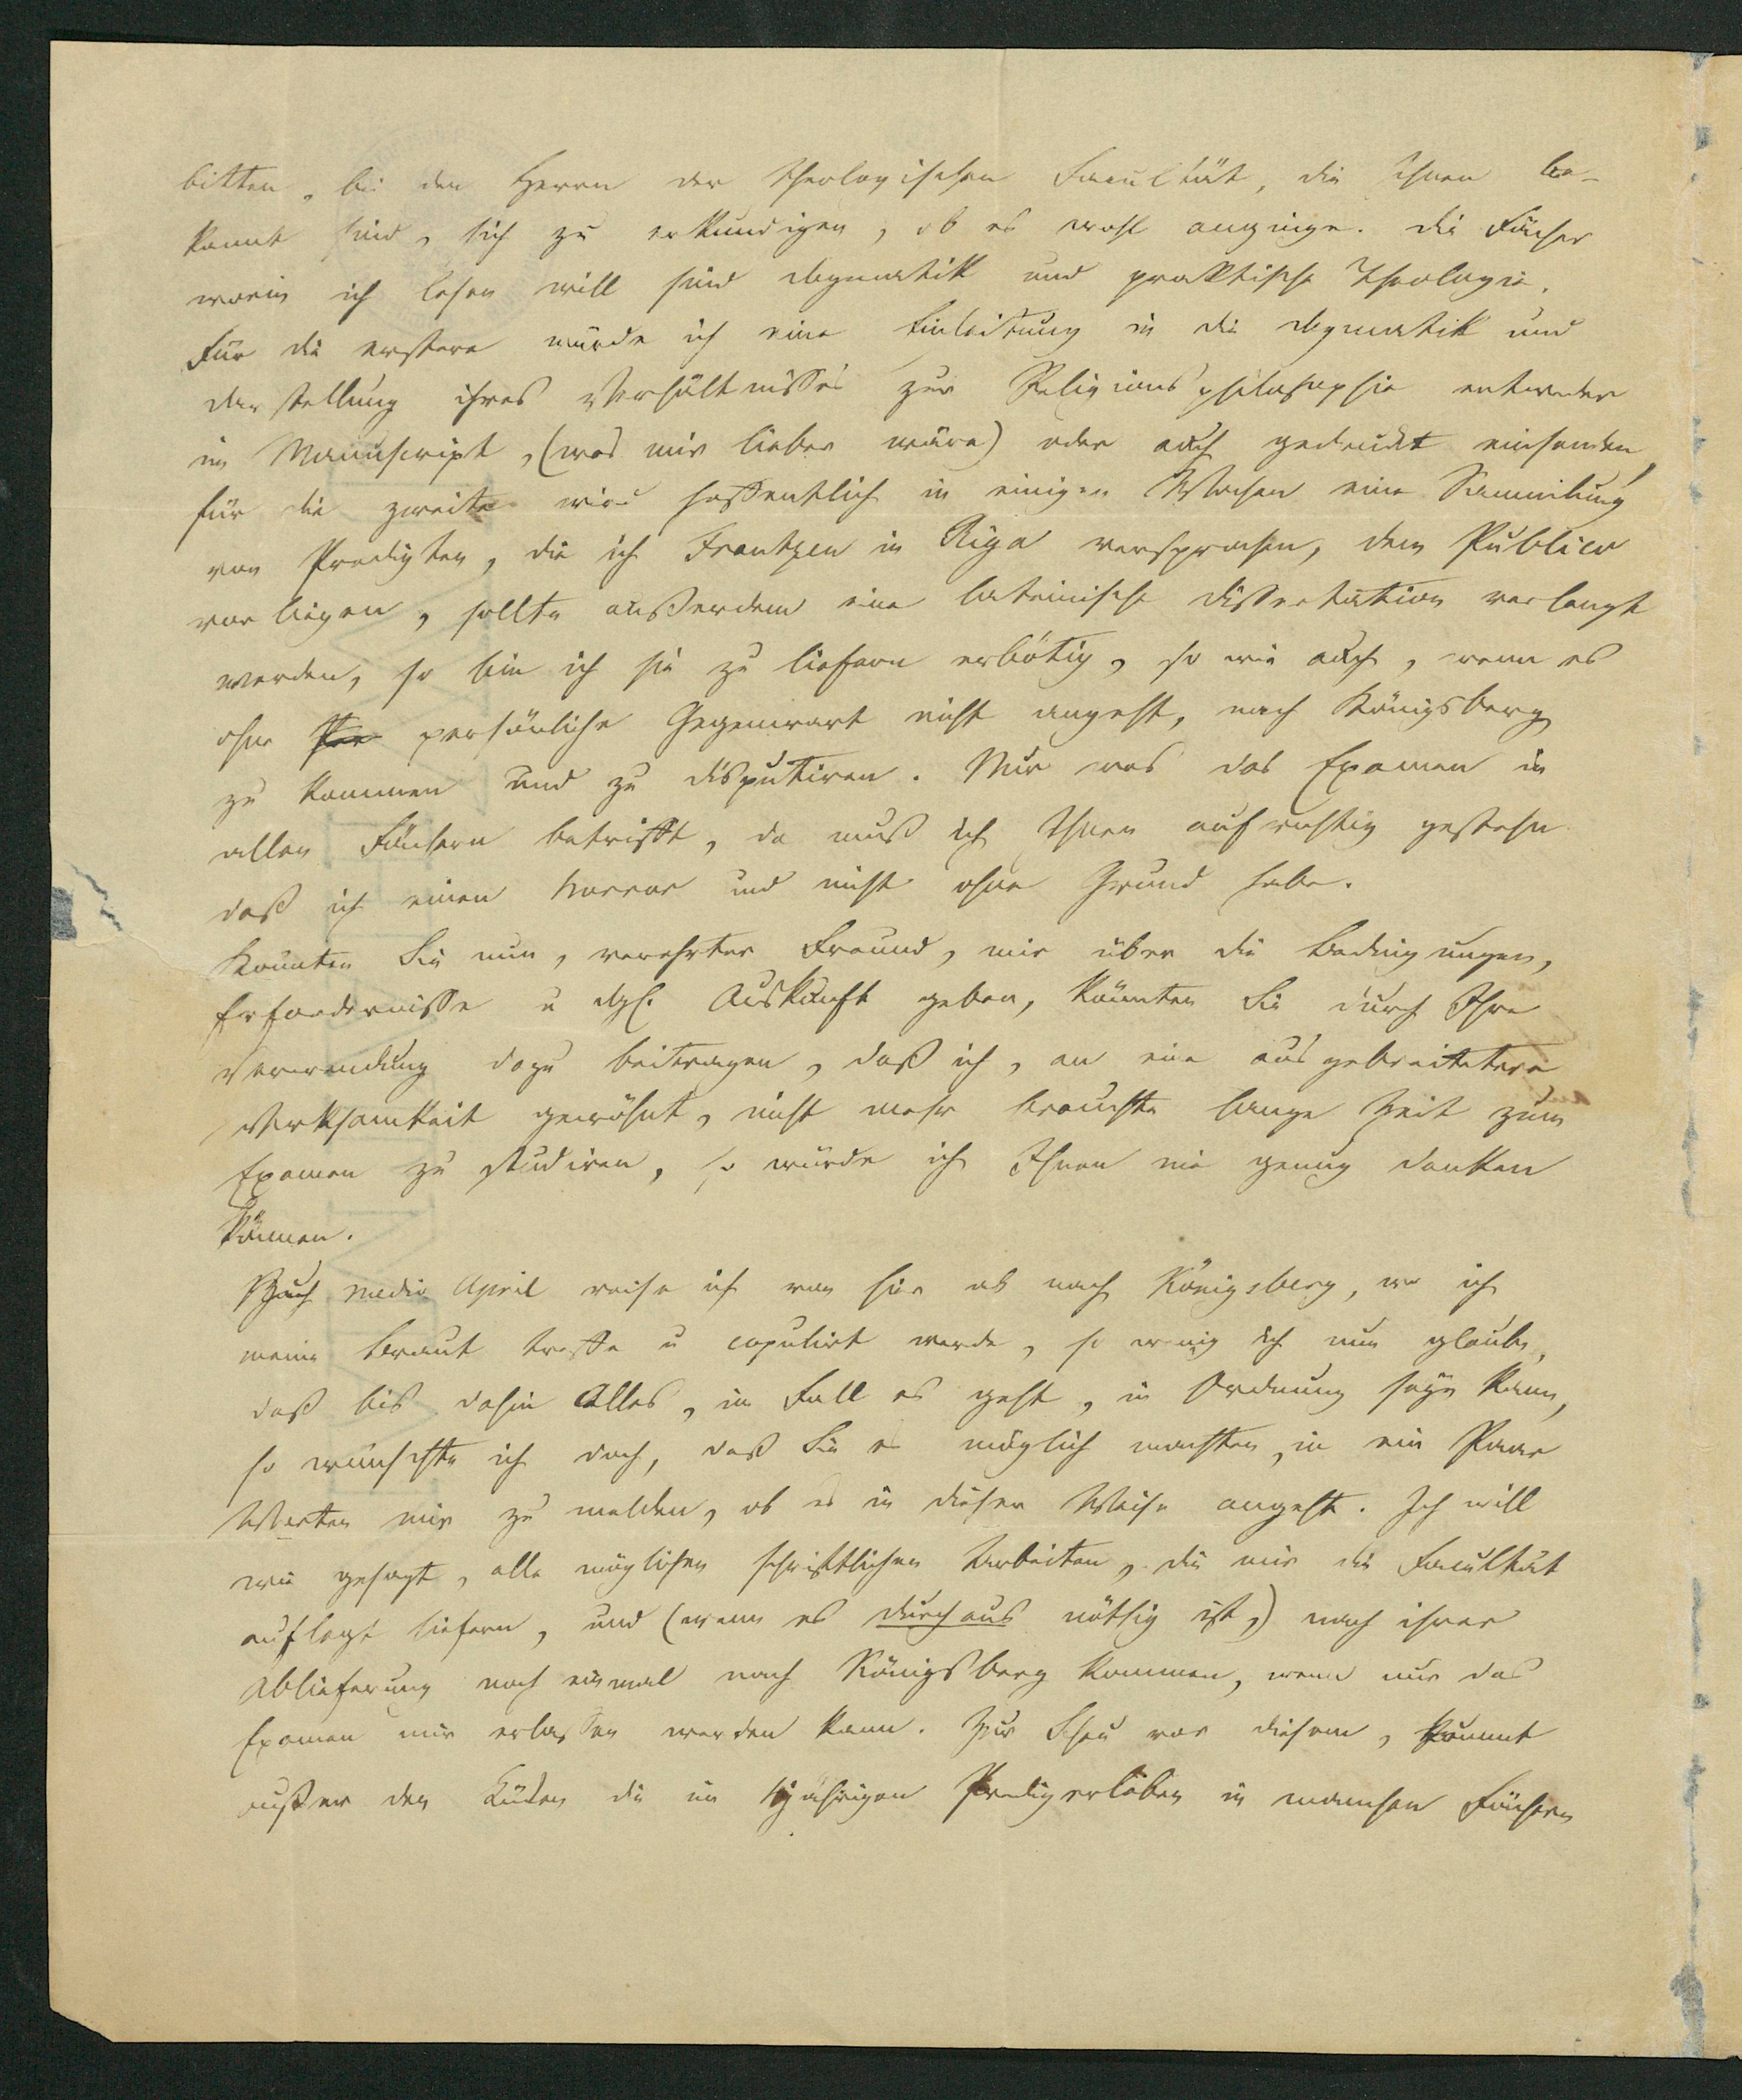 bitten, bei den Herrn der theologischen Facultät, die Ihnen be-
kannt sind, sich zu erkundigen, ob es wohl anginge. Die Fächer
worin ich lesen will sind Dogmatik und praktische Theologie.
Für die erstere würde ich eine Einleitung in die Dogmatik und
Darstellung ihres Verhältnisses zur Religionsphilosophie entweder
im Manuscript, (was mir lieber wäre) oder auch gedruckt einsenden,
für die zweite wird hoffentlich in einigen Wochen eine Sammlung
von Predigten, die ich Frantzen in Riga versprochen, dem Publico
vorliegen, sollte außerdem eine lateinische Dissertation verlangt
werden, so bin ich sie zu liefern erbötig, so wie auch, wenn es
ohne persönliche Gegenwart nicht angeht, nach Königsberg
zu kommen und zu disputiren. Nur was das Examen in
allen Fächern betrifft, da muß ich Ihnen aufrichtig gestehn
daß ich einen horror und nicht ohne Grund habe.
Könnten Sie nun, verehrter Freund, mir über die Bedingungen,
Erfordernisse u dgl. Auskunft geben, könnten Sie durch Ihre
Verwendung dazu beitragen, daß ich, an eine ausgebreitetere
Wirksamkeit gewöhnt, nicht mehr brauchte lange Zeit zum
Examen zu studiren, so würde ich Ihnen nie genug danken
können.
Nach medio April reise ich von hier ab nach Königsberg, wo ich
meine Braut treffe u copulirt werde, so wenig ich nun glaube,
daß bis dahin Alles, im Fall es geht, in Ordnung seyn kann,
so wünschte ich doch, daß Sie es möglich machten, in ein Paar
Worten mir zu melden, ob es in dieser Weise angeht. Ich will
wie gesagt, alle möglichen schriftlichen Arbeiten, die mir die Facultät
auflegt liefern, und (wenn es durchaus nöthig ist,) nach ihrer
Ablieferung noch einmal nach Königsberg kommen, wenn nur das
Examen mir erlassen werden kann. Zur Scheu vor diesem, kommt
außer den Lücken die im jährigen Predigerleben in manchen Fächern